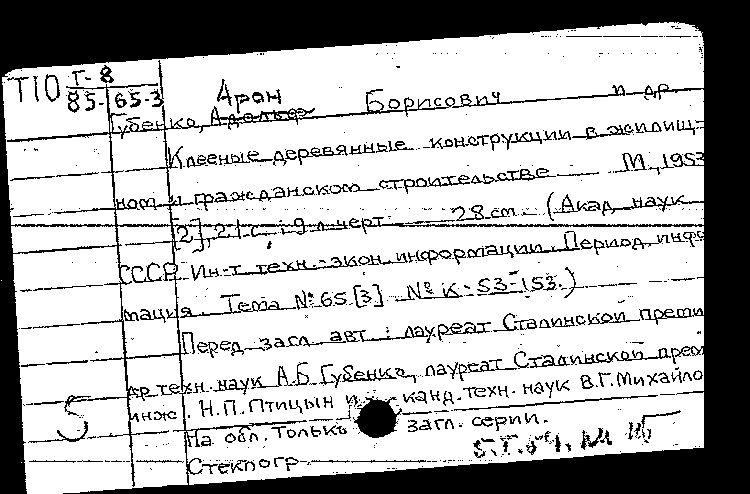 Т10 Г-8
85- 65-3
Арон
Губенко, Адольф Борисович и др.
Клееные деревянные конструкции в жилищ-
ном и гражданском строительстве М., 1953
[2], 21 с.; 9 л. черт. 28 см. (Акад. наук
СССР. Ин-т техн.-экон. информации. Период. инфо
мация. Тема № 65 [3] № К-53-153.)
Перед загл. авт.: лауреат Сталинской преми
др техн. наук А.Б. Губенко, лауреат Сталинской прем
инж. Н.П. Птицын и канд. техн. наук В.Г. Михайло
5
На обл. только загл. серии.
Стеклогр